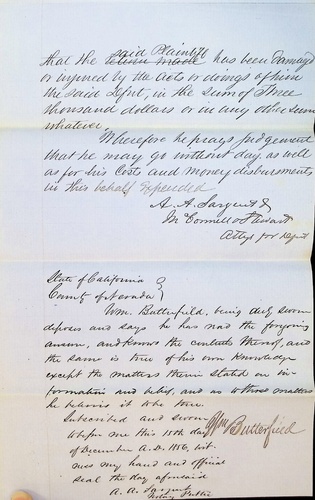 that the said Plaintiff has been damaged
or injured by the acts or doings of him
the said Deft, in the sum of Three
thousand dollars or in any other sum
whatever.
Wherefore he prays Judgement
that he may go without day as well
as for his costs and money disbursments
in this behalf expended
A. A. Sargent &
McConnell & Stewart
Attys for Deft
State of California
County of Nevada
Wm. Butterfield, being duly sworn
deposes and says he has read the forgoing
answer, and knows the contents thereof, and
the same is true of his own knowledge
except the matters therein stated on in-
formation and belief, and as to those matters
he believes it to be true.
Subscribed and sworn
to before me this 15th day
Wm Butterfield
of December A.D. 1856, wit-
ness my hand and official
seal the day aforesaid
A. A. Sargent
Notary Public